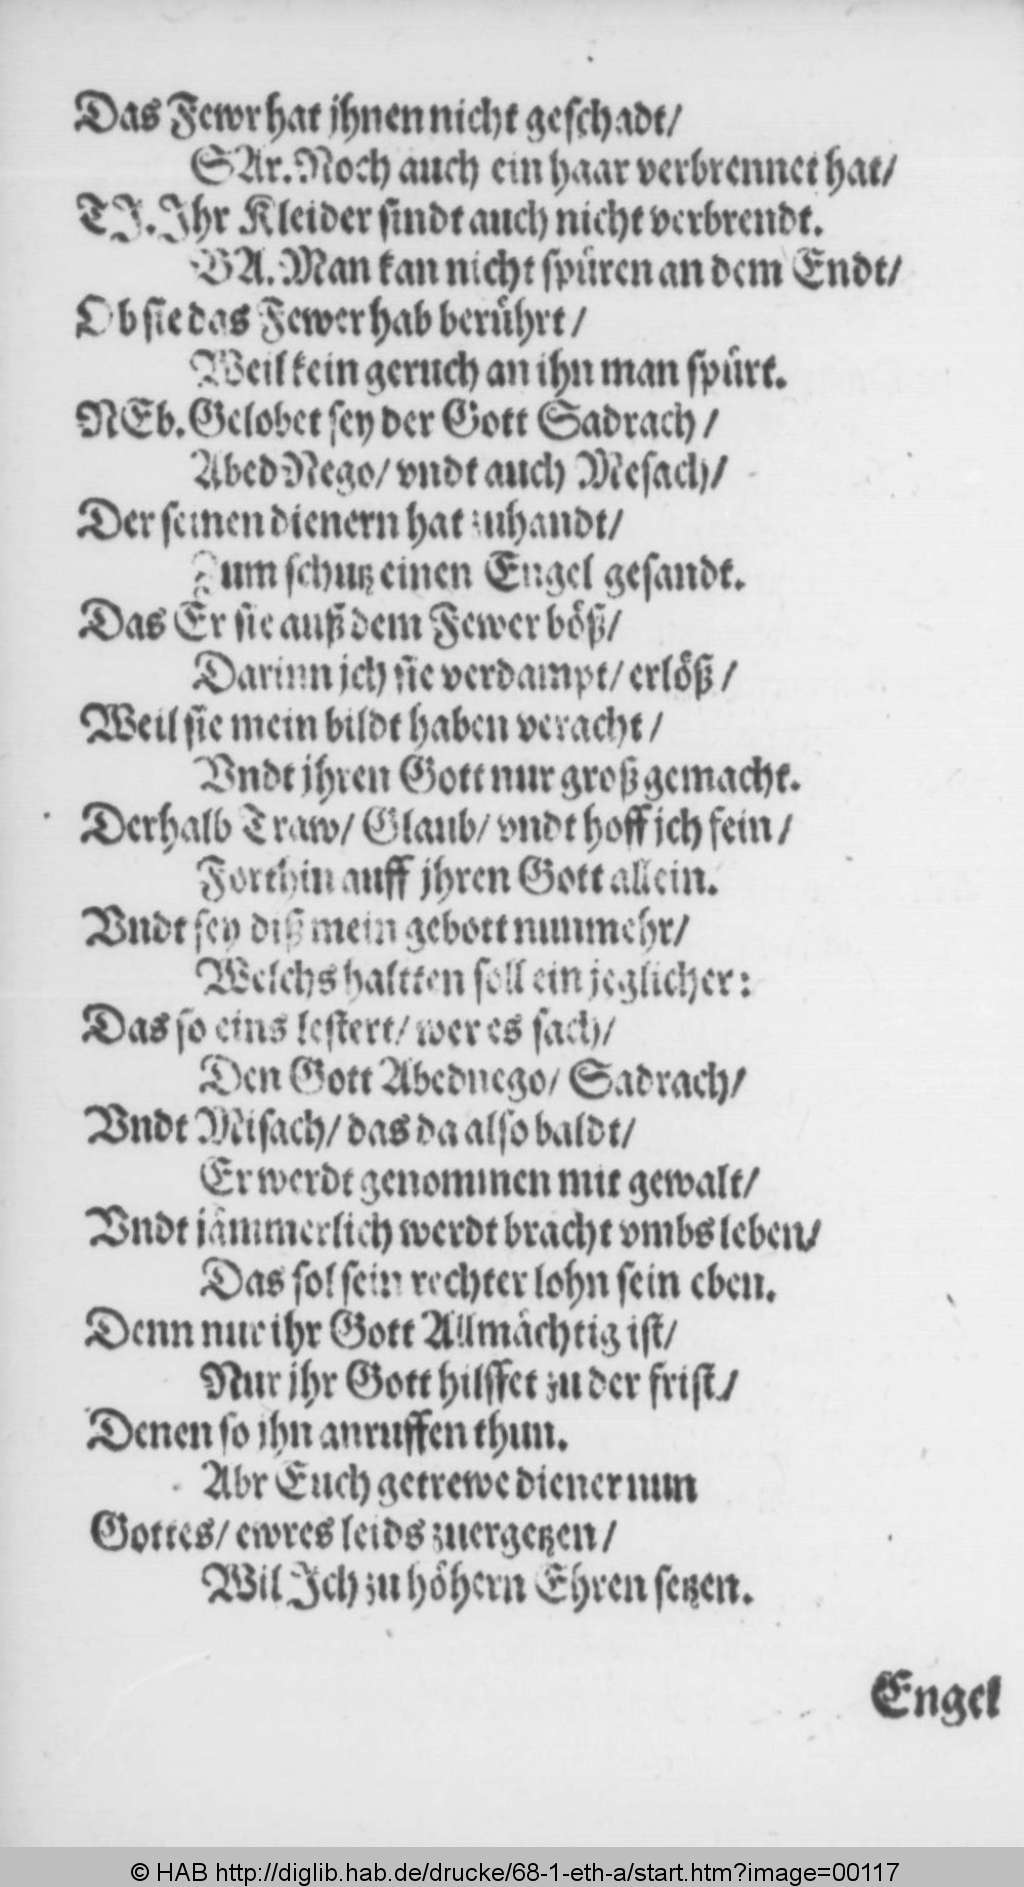 Das Fewr hat jhnen nicht geschadt/
SAr. Noch auch ein haar verbrennet hat/
TJ. Jhr Kleider sindt auch nicht verbrendt.
BA. Man kan nicht spüren an dem Endt/
Ob sie das Fewer hab berührt/
Weil kein geruch an ihn man spürt.
NEb. Gelobet sey der Gott Sadrach/
Abed Nego/ vndt auch Mesach/
Der seinen dienern hat zuhandt/
Zum schutz einen Engel gesandt.
Das Er sie auß dem Fewer böß/
Darinn jch sie verdampt/ erlöß/
Weil sie mein bildt haben veracht/
Vndt jhren Gott nur groß gemacht.
Derhalb Traw/ Glaub/ vndt hoff jch fein/
Forthin auff jhren Gott allein.
Vndt sey diß mein gebott nunmehr/
Welchs haltten soll ein jeglicher:
Das so eins lestert/ wer es sach/
Den Gott Abednego/ Sadrach/
Vndt Misach/ das da also baldt/
Er werdt genommen mit gewalt/
Vndt jämmerlich werdt bracht vmbs leben/
Das sol sein rechter lohn sein eben.
Denn nur ihr Gott Allmächtig ist/
Nur jhr Gott hilffet zu der frist/
Denen so jhn anruffen thun.
Abr Euch getrewe diener nun
Gottes/ ewres leids zuergetzen/
Wil Jch zu höhern Ehren setzen.
Engel
© HAB http://diglib.hab.de/drucke/68-1-eth-a/start.htm?image=00117